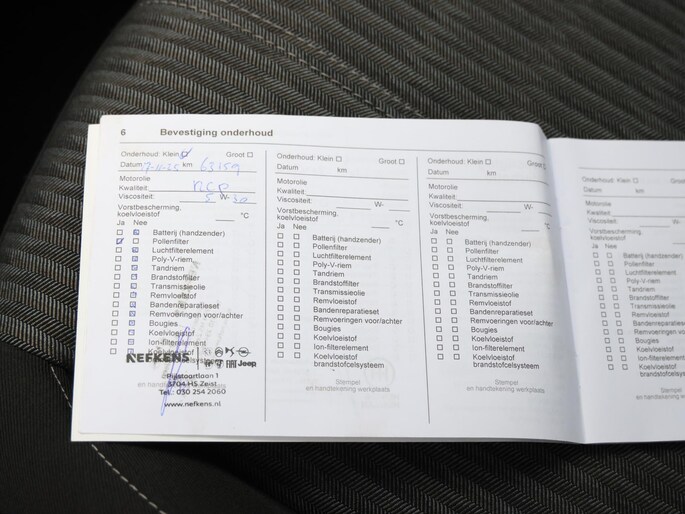 6 Bevestiging onderhoud
Onderhoud: Klein Groot
Datum km 63159
Motorolie
Kwaliteit:
Viscositeit: 5 W- 30
Vorstbescherming.
koelvloeistof °C
Ja Nee
Batterij (handzender)
Pollenfilter
Luchtfilterelement
Poly-V-riem
Tandriem
Brandstoffilter
Transmissieolie
Remvloeistof
Bandenreparatieset
Remvoeringen voor/achter
Bougies
Koelvloeistof
Ion-filterelement
NEFKENS Jeep
Pijlstaartlaan 1
3704 HS Zeist
Tel.: 030 254 2060
www.nefkens.nl
Onderhoud: Klein Groot
Datum km
Motorolie
Kwaliteit:
Viscositeit: W-
Vorstbescherming.
koelvloeistof °C
Ja Nee
Batterij (handzender)
Pollenfilter
Luchtfilterelement
Poly-V-riem
Tandriem
Brandstoffilter
Transmissieolie
Remvloeistof
Bandenreparatieset
Remvoeringen voor/achter
Bougies
Koelvloeistof
Ion-filterelement
Koelvloeistof
brandstofcelsysteem
Stempel
en handtekening werkplaats
Onderhoud: Klein Groot
Datum km
Motorolie
Kwaliteit:
Viscositeit: W-
Vorstbescherming.
koelvloeistof °C
Ja Nee
Batterij (handzender)
Pollenfilter
Luchtfilterelement
Poly-V-riem
Tandriem
Brandstoffilter
Transmissieolie
Remvloeistof
Bandenreparatieset
Remvoeringen voor/achter
Bougies
Koelvloeistof
Ion-filterelement
Koelvloeistof
brandstofcelsysteem
Stempel
en handtekening werkplaats
Onderhoud: Klein
Datum km
Motorolie
Kwaliteit:
Viscositeit:
Vorstbescherming.
koelvloeistof
Ja Nee
Batterij (handzender)
Pollenfilter
Luchtfilterelement
Poly-V-riem
Tandriem
Brandstoffilter
Transmissieolie
Remvloeistof
Bandenreparatieset
Remvoeringen voor/achter
Bougies
Koelvloeistof
Ion-filterelement
Koelvloeistof
brandstofcelsysteem
Stempel
en handtekening werkplaats